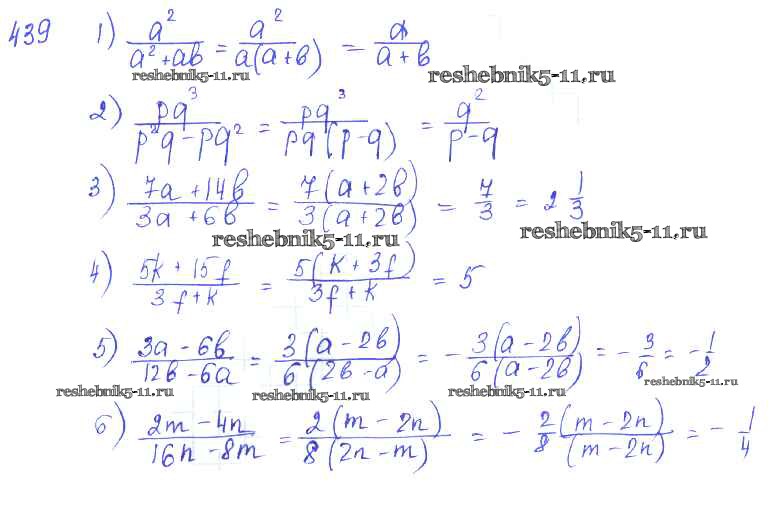 439 1) a²/(a²+ab) = a²/(a(a+b)) = a/(a+b)
reshebnik5-11.ru reshebnik5-11.ru
2) pq³/(p²q-pq²) = pq³/(pq(p-q)) = q²/(p-q)
3) (7a+14b)/(3a+6b) = 7(a+2b)/(3(a+2b)) = 7/3 = 2 1/3
reshebnik5-11.ru reshebnik5-11.ru
4) (5k+15f)/(3f+k) = 5(k+3f)/(3f+k) = 5
5) (3a-6b)/(12b-6a) = 3(a-2b)/(6(2b-a)) = -3(a-2b)/(6(a-2b)) = -3/6 = -1/2
reshebnik5-11.ru reshebnik5-11.ru reshebnik5-11.ru reshebnik5-11.ru
6) (2m-4n)/(16n-8m) = 2(m-2n)/(8(2n-m)) = -2/8 (m-2n)/(m-2n) = -1/4